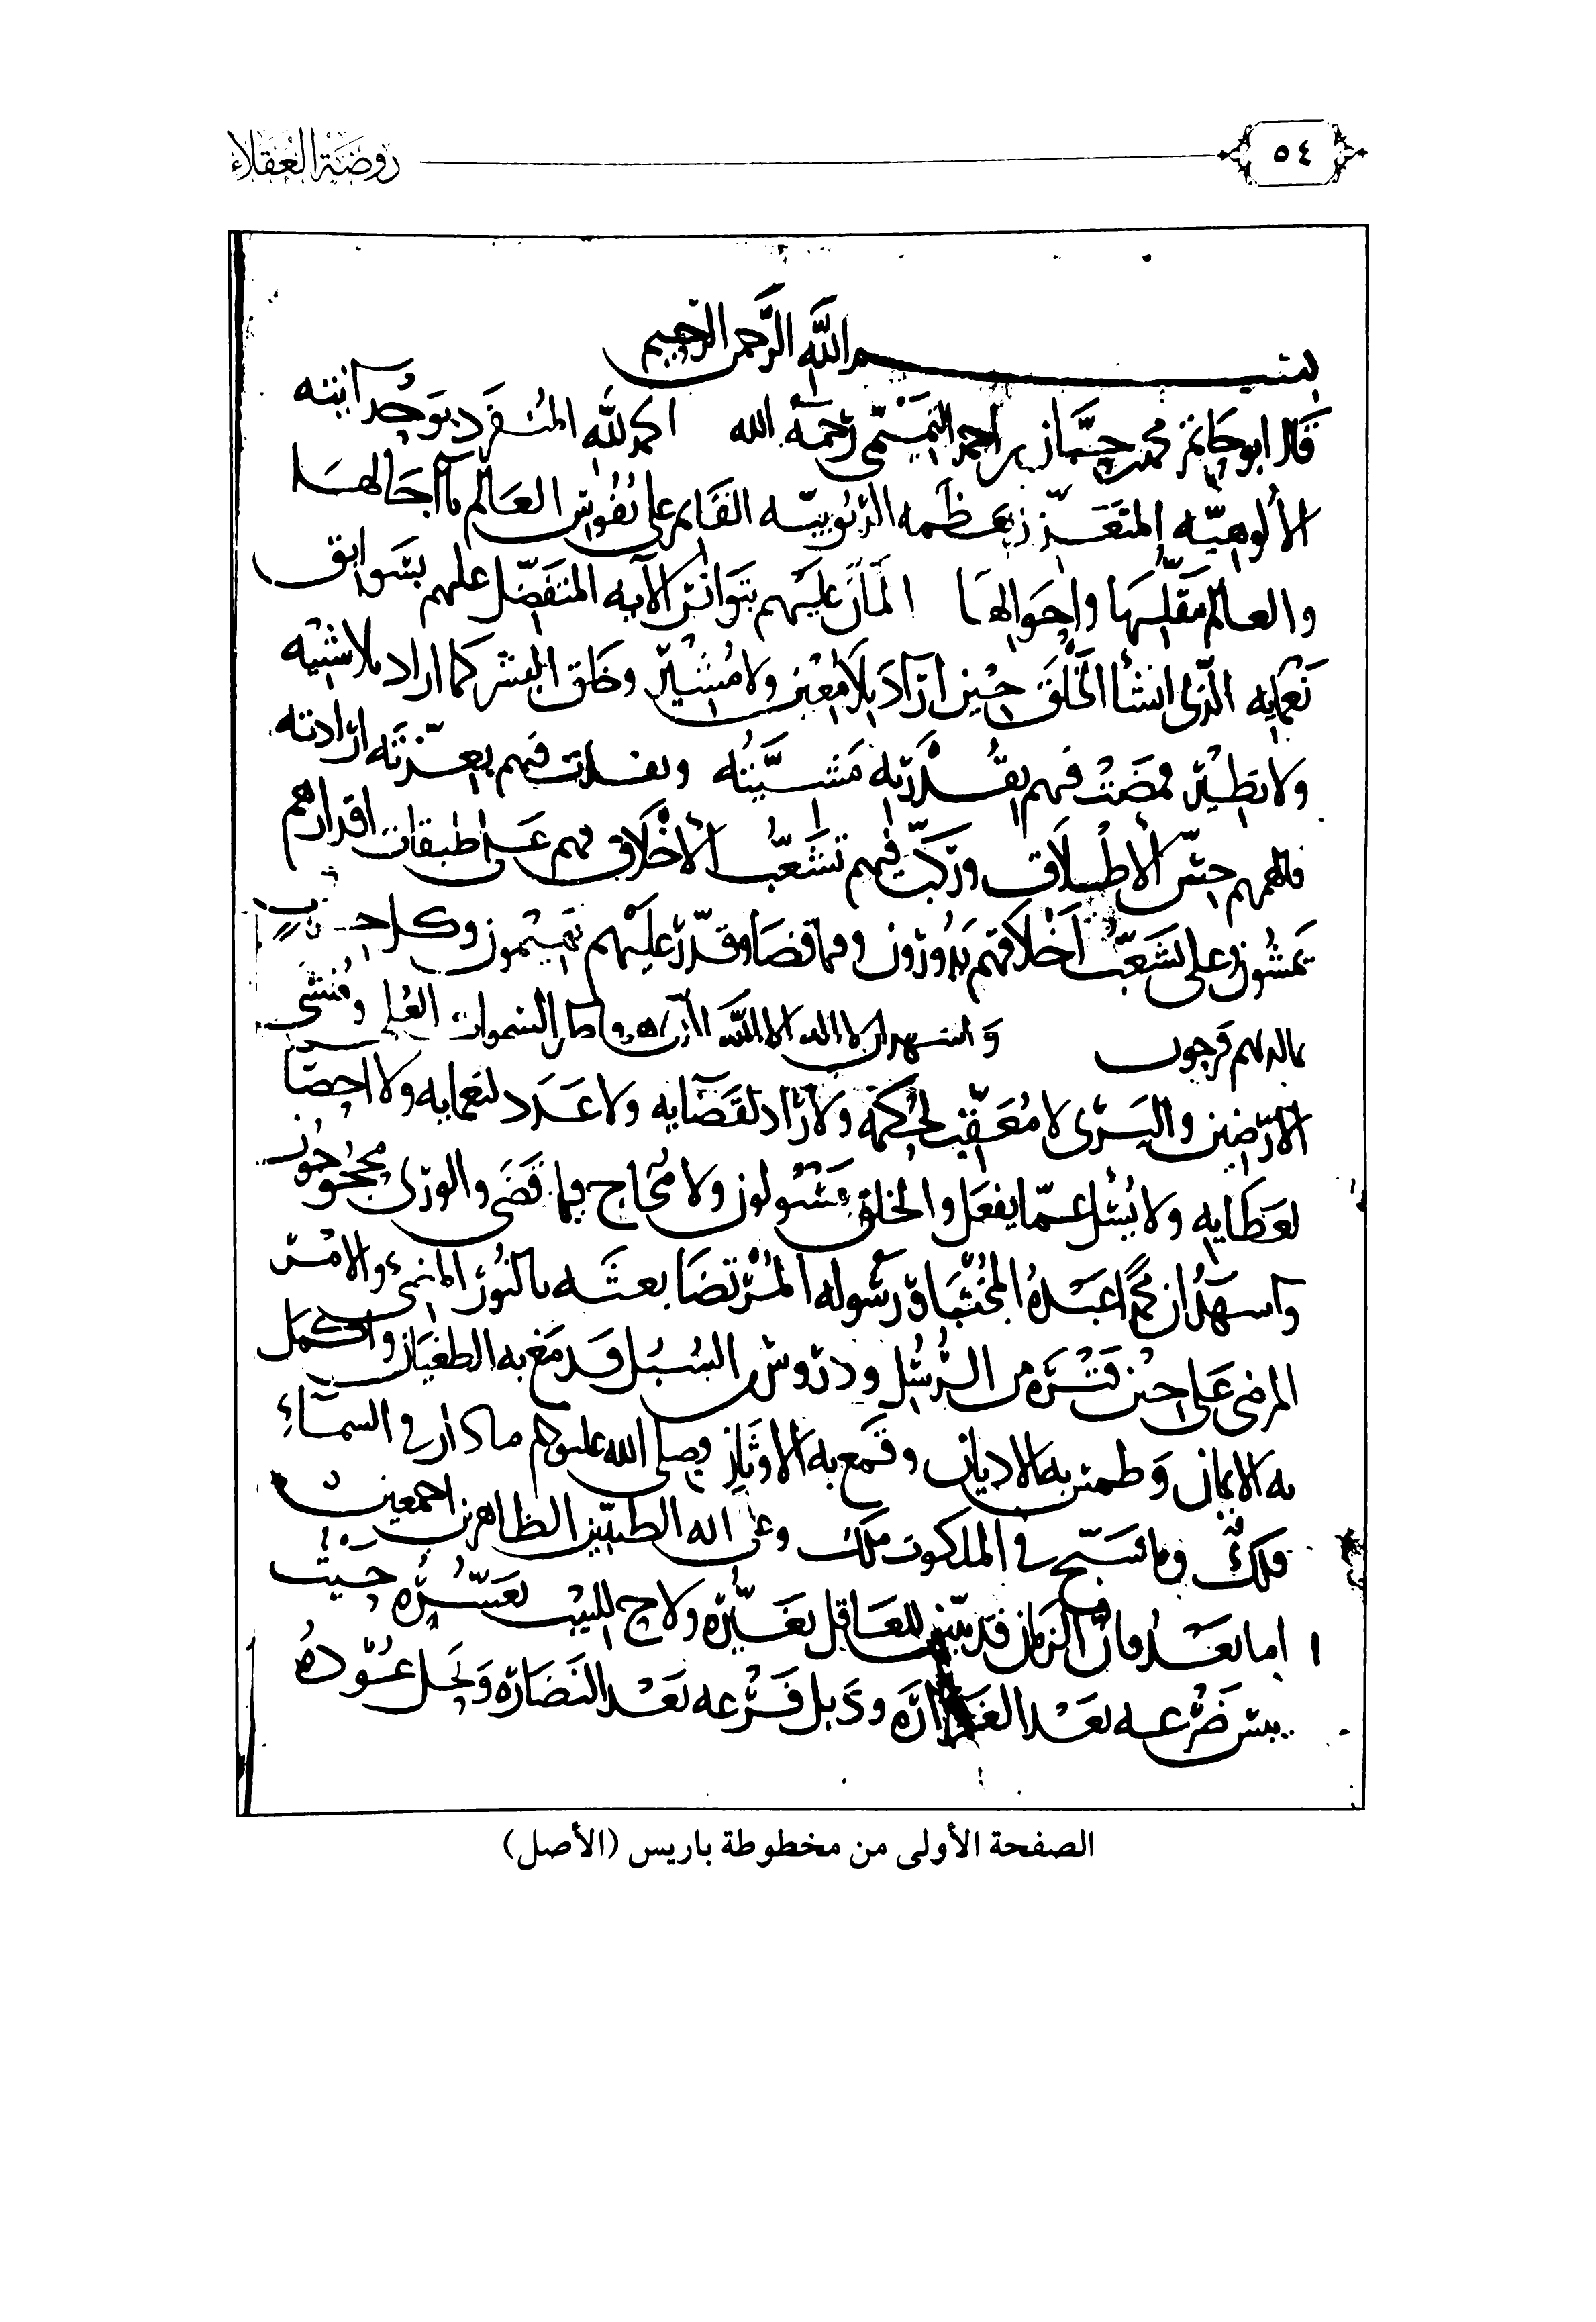 ٥٤
روضة العقلاء
بسم الله الرحمن الرحيم
قال ابو حاتم محمد بن حبان بن احمد التميمي رحمه الله الحمد لله المتفرد بوحدانيته
الألوهيه المتعزز بعظمه الربوبيه القايم على نفوس العالم بآجالها
والعالم بتقلبها واحوالها المانّ عليهم بتواتر آلآيه المتفضل عليهم بسوابق
نعمايه الذي انشأ الخلق حين اراد بلا معين ولا مشير وخلق البشر كما اراد بلا شبيه
ولا نظير فمضت فيهم بقدرته مشيته ونفذت فيهم بعزته ارادته
فالهمهم حسن الاطلاق وركب فيهم تشعب الأخلاق فهم على طبقات اقدارهم
يمشون وعلى تشعب اخلاقهم يدورون وفيما قضا وقدر عليهم يهيمون وكل حزب
بما لديهم فرحون واشهد ان لا اله الا الله فاطر السموات العلى ومنشئ
الارضين والثرى لا معقب لحكمه ولا راد لقضايه ولا عدد لنعمايه ولا احصا
لعطايه ولا يسئل عما يفعل والخلق مسئولون ولا محاج فيما قضى والورى محجوجون
واشهد ان محمدا عبده المجتبا ورسوله المرتضا بعثه بالنور المنير والامر
المرضي على حين فترة من الرسل ودروس السبل فدمغ به الطغيان واكمل
به الايمان وطمس به الاديان وقمع به الاوثان وصلى الله عليه وسلم ما دار في السماء
فلك وما سبح في الملكوت ملك وعلى اله الطيبين الطاهرين اجمعين
اما بعد فان الزمان قد تبين للعاقل تغيره ولاح للبيب تعسره حيث
يبس ضرعه بعد الغزارة وذبل فرعه بعد النضارة ونحل عوده
الصفحة الأولى من مخطوطة باريس (الأصل)